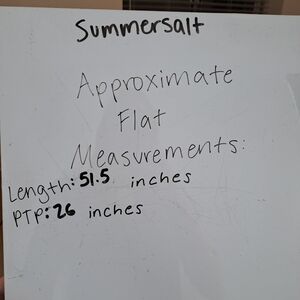 Summersalt
Approximate
Flat
Measurements:
Length: 51.5 inches
PTP: 26 inches